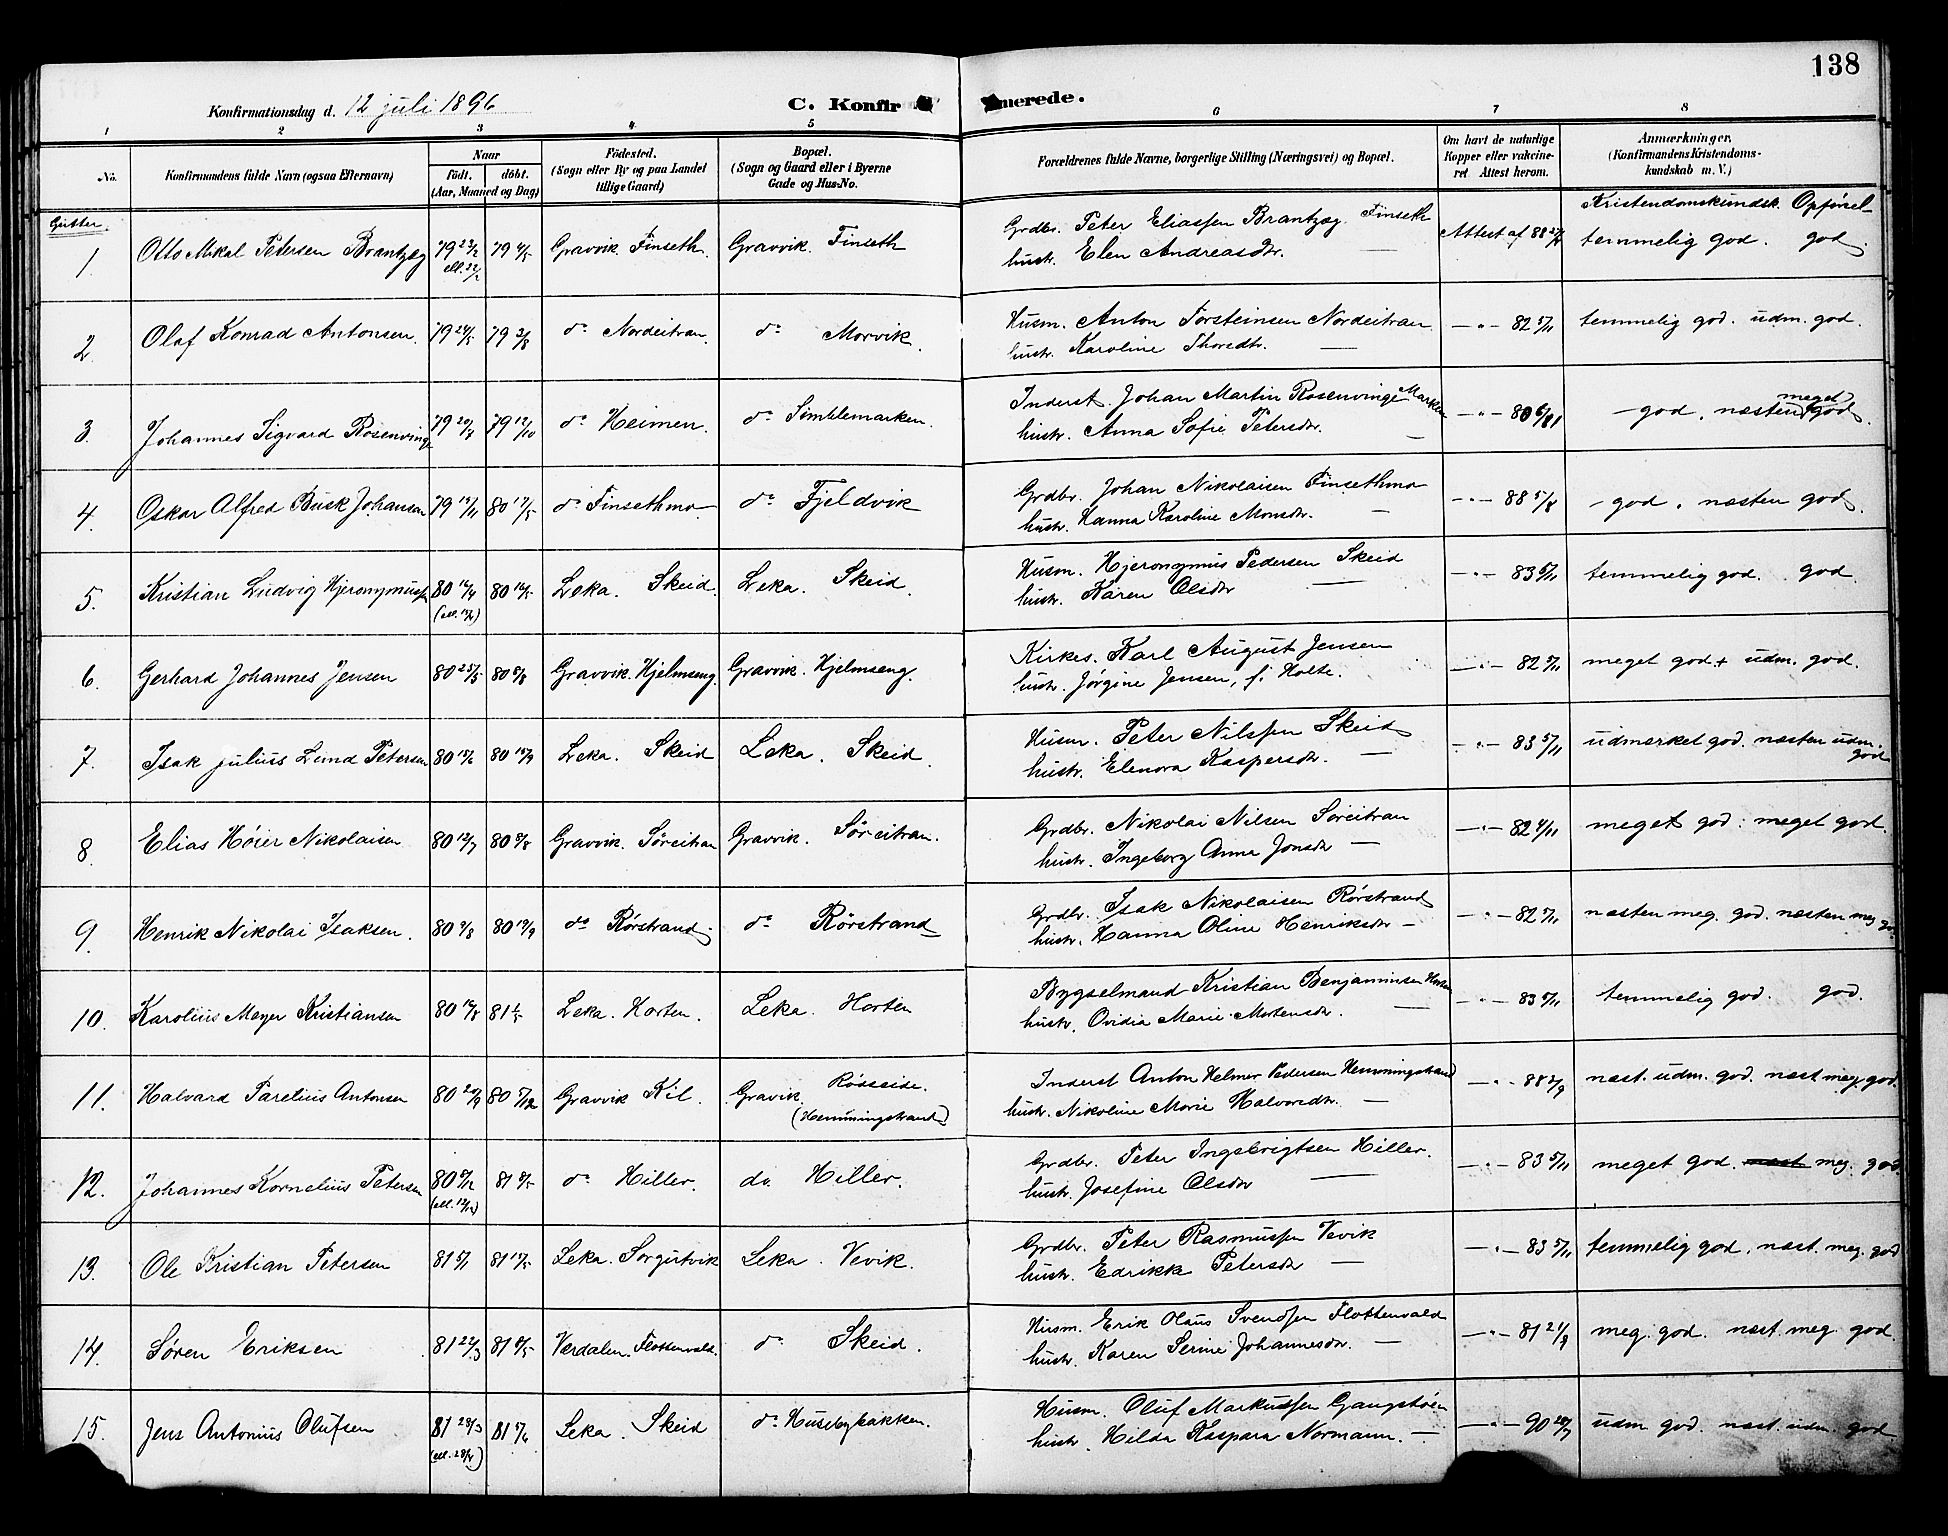 138
Konfirmationsdag d. 12 juli 1896
C. Konfirmerede.
1 2 3 4 5 6 7 8
No. Konfirmandens fulde Navn (ogsaa Efternavn) Naar födt. döbt. (Aar, Maaned og Dag) Födested. (Sogn eller By og paa Landet tillige Gaard) Bopæl. (Sogn og Gaard eller i Byerne Gade og Hus-No. Forældrenes fulde Navne, borgerlige Stilling (Næringsvei) og Bopæl. Om havt de naturlige Kopper eller vakcineret Attest herom. Anmærkninger, (Konfirmandens Kristendomskundskab m. V.)
Gutter. Kristendomskundsk. Opførsel
1. Otto Mikal Petersen Brantzæg 79 23/2 79 4/5 Gravvik. Finseth. Gravvik. Finseth Grdbr. Peter Eliassen Brantzæg Finseth Attest af 88 temmelig god. god.
ell. 22/2 hustr. Elen Andreasdtr.
2. Olaf Konrad Antonsen. 79 24/5 79 3/8 do Nordeitran. do Morvik. Husm. Anton Torsteinsen Nordeitran — " — 82 5/11 temmelig god. udm. god.
hustr. Karoline Thoredtr. —
3. Johannes Sigvard Rosenvinge 79 79 12/10 do Heimen. do Simblemarken. Inderst. Johan Martin Rosenvinge Marken — " — 80 god, næsten meget god
hustr. Anna Sofie Petersdtr. —
4. Oskar Alfred Busk Johansen 79 19/11 80 17/5 do Finsethmo do Fjeldvik Grdbr. Johan Nikolaisen Finsethmo — " — 88 5/8 god. næsten god.
hustr. Hanna Karoline Monsdtr. —
5. Kristian Ludvig Hjeronymussen 80 80 16/5 Leka. Skeid. Leka. Skeid. Husm. Hjeronymus Pedersen Skeid — " — 83 5/11 temmelig god. god
hustr. Karen Olsdtr —
6. Gerhard Johannes Jensen 80 25/5 80 8/8 Gravvik. Hjelmseng. Gravvik. Hjelmseng. Kirkes. Karl August Jensen — " — 82 5/11 meget god + udm. god.
hustr. Jørgine Jensen, f. Holte.
7. Isak julius Lund Petersen 80 15/6 80 19/9 Leka. Skeid Leka. Skeid. Husm. Peter Nilssen Skeid — " — 83 5/11 udmærket god. næsten udm. god
hustr. Elenora Kaspersdtr. —
8. Elias Høier Nikolaisen 80 12/7 80 8/8 Gravvik. Søreitran Gravvik. Søreitran. Grdbr. Nikolai Nilsen Søreitran — " — 82 4/11 meget god: meget god.
hustr. Ingeborg Anna Jonsdtr —
9. Henrik Nikolai Isaksen. 80 9/8 80 19/9 do Rørstrand. do Rørstrand Grdbr. Isak Nikolaisen Rørstrand — " — 82 5/11 næsten meg. god. næsten meg. go.
hustr. Hanna Oline Henriksdtr —
10. Karolius Meyer Kristiansen 80 81 1/5 Leka. Horten. Leka. Horten Bygselmand Kristian Benjaminsen Horten — " — 83 5/11 temmelig god. god.
hustr. Ovidia Marie Mortensdtr. —
11. Halvard Parelius Antonsen 80 20/9 80 5/12 Gravvik Kil. Gravik. Rødseide. (Hemmingstrand) Inderst Anton Helmer Pedersen Hemmingstrand — " — 88 2/9 næst. udm. god. næst meg. god.
hustr. Nikoline Marie Halvordtr. —
12. Johannes Kornelius Petersen 80 8/12 81 8/5 do Hiller. do. Hiller. Grdbr. Peter Ingebrigtsen Hiller. — " — 83 5/11 meget god. næst meg. god
(ell. 12/12) hustr. Josefine Olsdtr —
13. Ole Kristian Petersen 81 5/1 81 15/5 Leka. Sorgutvik Leka. Vevik. Grdbr. Peter Rasmussen Vevik — " — 83 5/11 temmelig god, næst. meg. god
hustr. Edrikke Petersdtr —
14. Søren Eriksen 81 22/3 81 8/5 Værdalen. Flottenvald. do Skeid. Husm. Erik Olaus Svendsen Flottenvald — " — 81 21/9 meg. god. næst. meg. god.
hustr. Karen Serine Johannesdtr. —
15. Jens Antonius Olufsen 81 28/3 81 5/6 Leka. Skeid do Husebybakken. Husm. Oluf Markussen Gangstøen — " — 90 20/7 udm god. næst. udm. god.
(ell. 28/4) hustr. Hilda Kaspara Normann. —